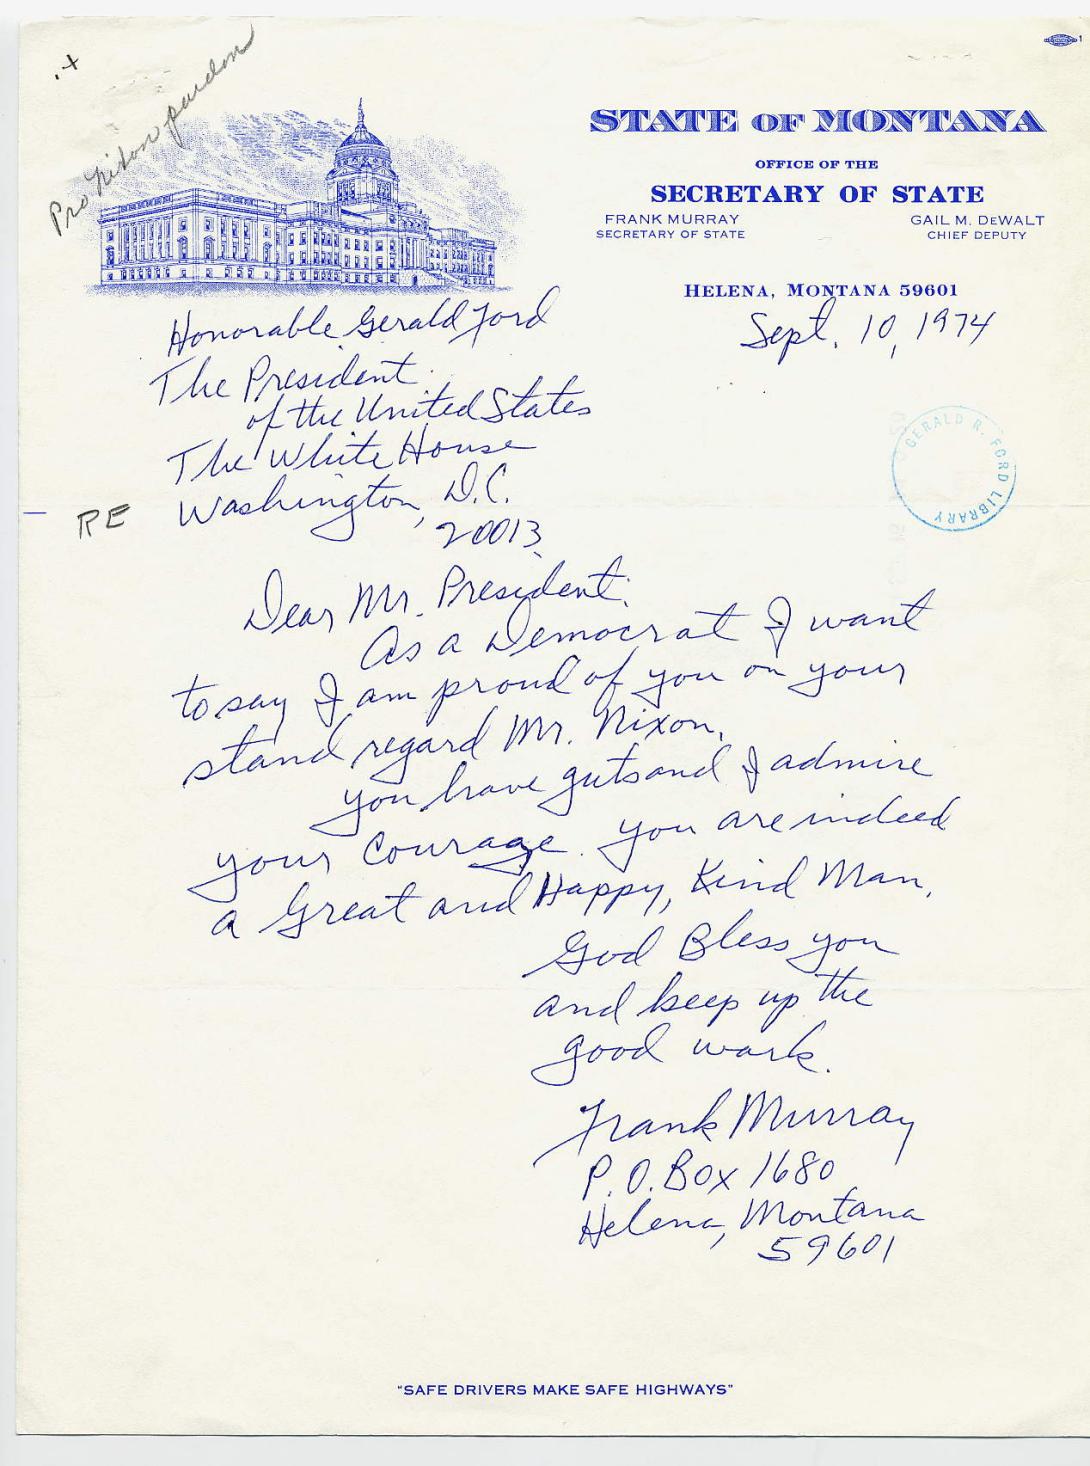 Pro Nixon pardon
STATE OF MONTANA
OFFICE OF THE
SECRETARY OF STATE
FRANK MURRAY
SECRETARY OF STATE
GAIL M. DEWALT
CHIEF DEPUTY
HELENA, MONTANA 59601
Sept. 10, 1974
Honorable Gerald Ford
The President
of the United States
The White House
Washington, D.C.
20013
RE
GERALD R. FORD LIBRARY
Dear Mr. President:
As a Democrat I want
to say I am proud of you on your
stand regard Mr. Nixon.
You have guts and I admire
your courage. You are indeed
a Great and Happy, Kind Man.
God Bless you
and keep up the
good work.
Frank Murray
P.O. Box 1680
Helena, Montana
59601
"SAFE DRIVERS MAKE SAFE HIGHWAYS"